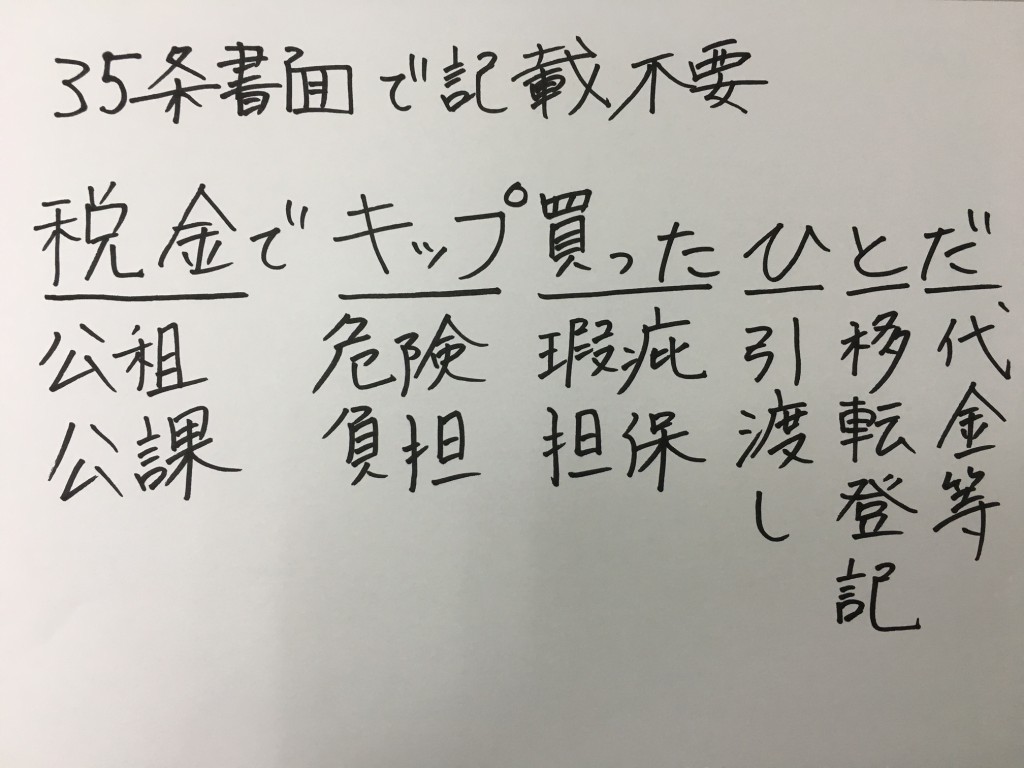 35条書面で記載不要
税金でキップ買ったひとだ
公租公課
危険負担
瑕疵担保
引渡し
移転登記
代金等